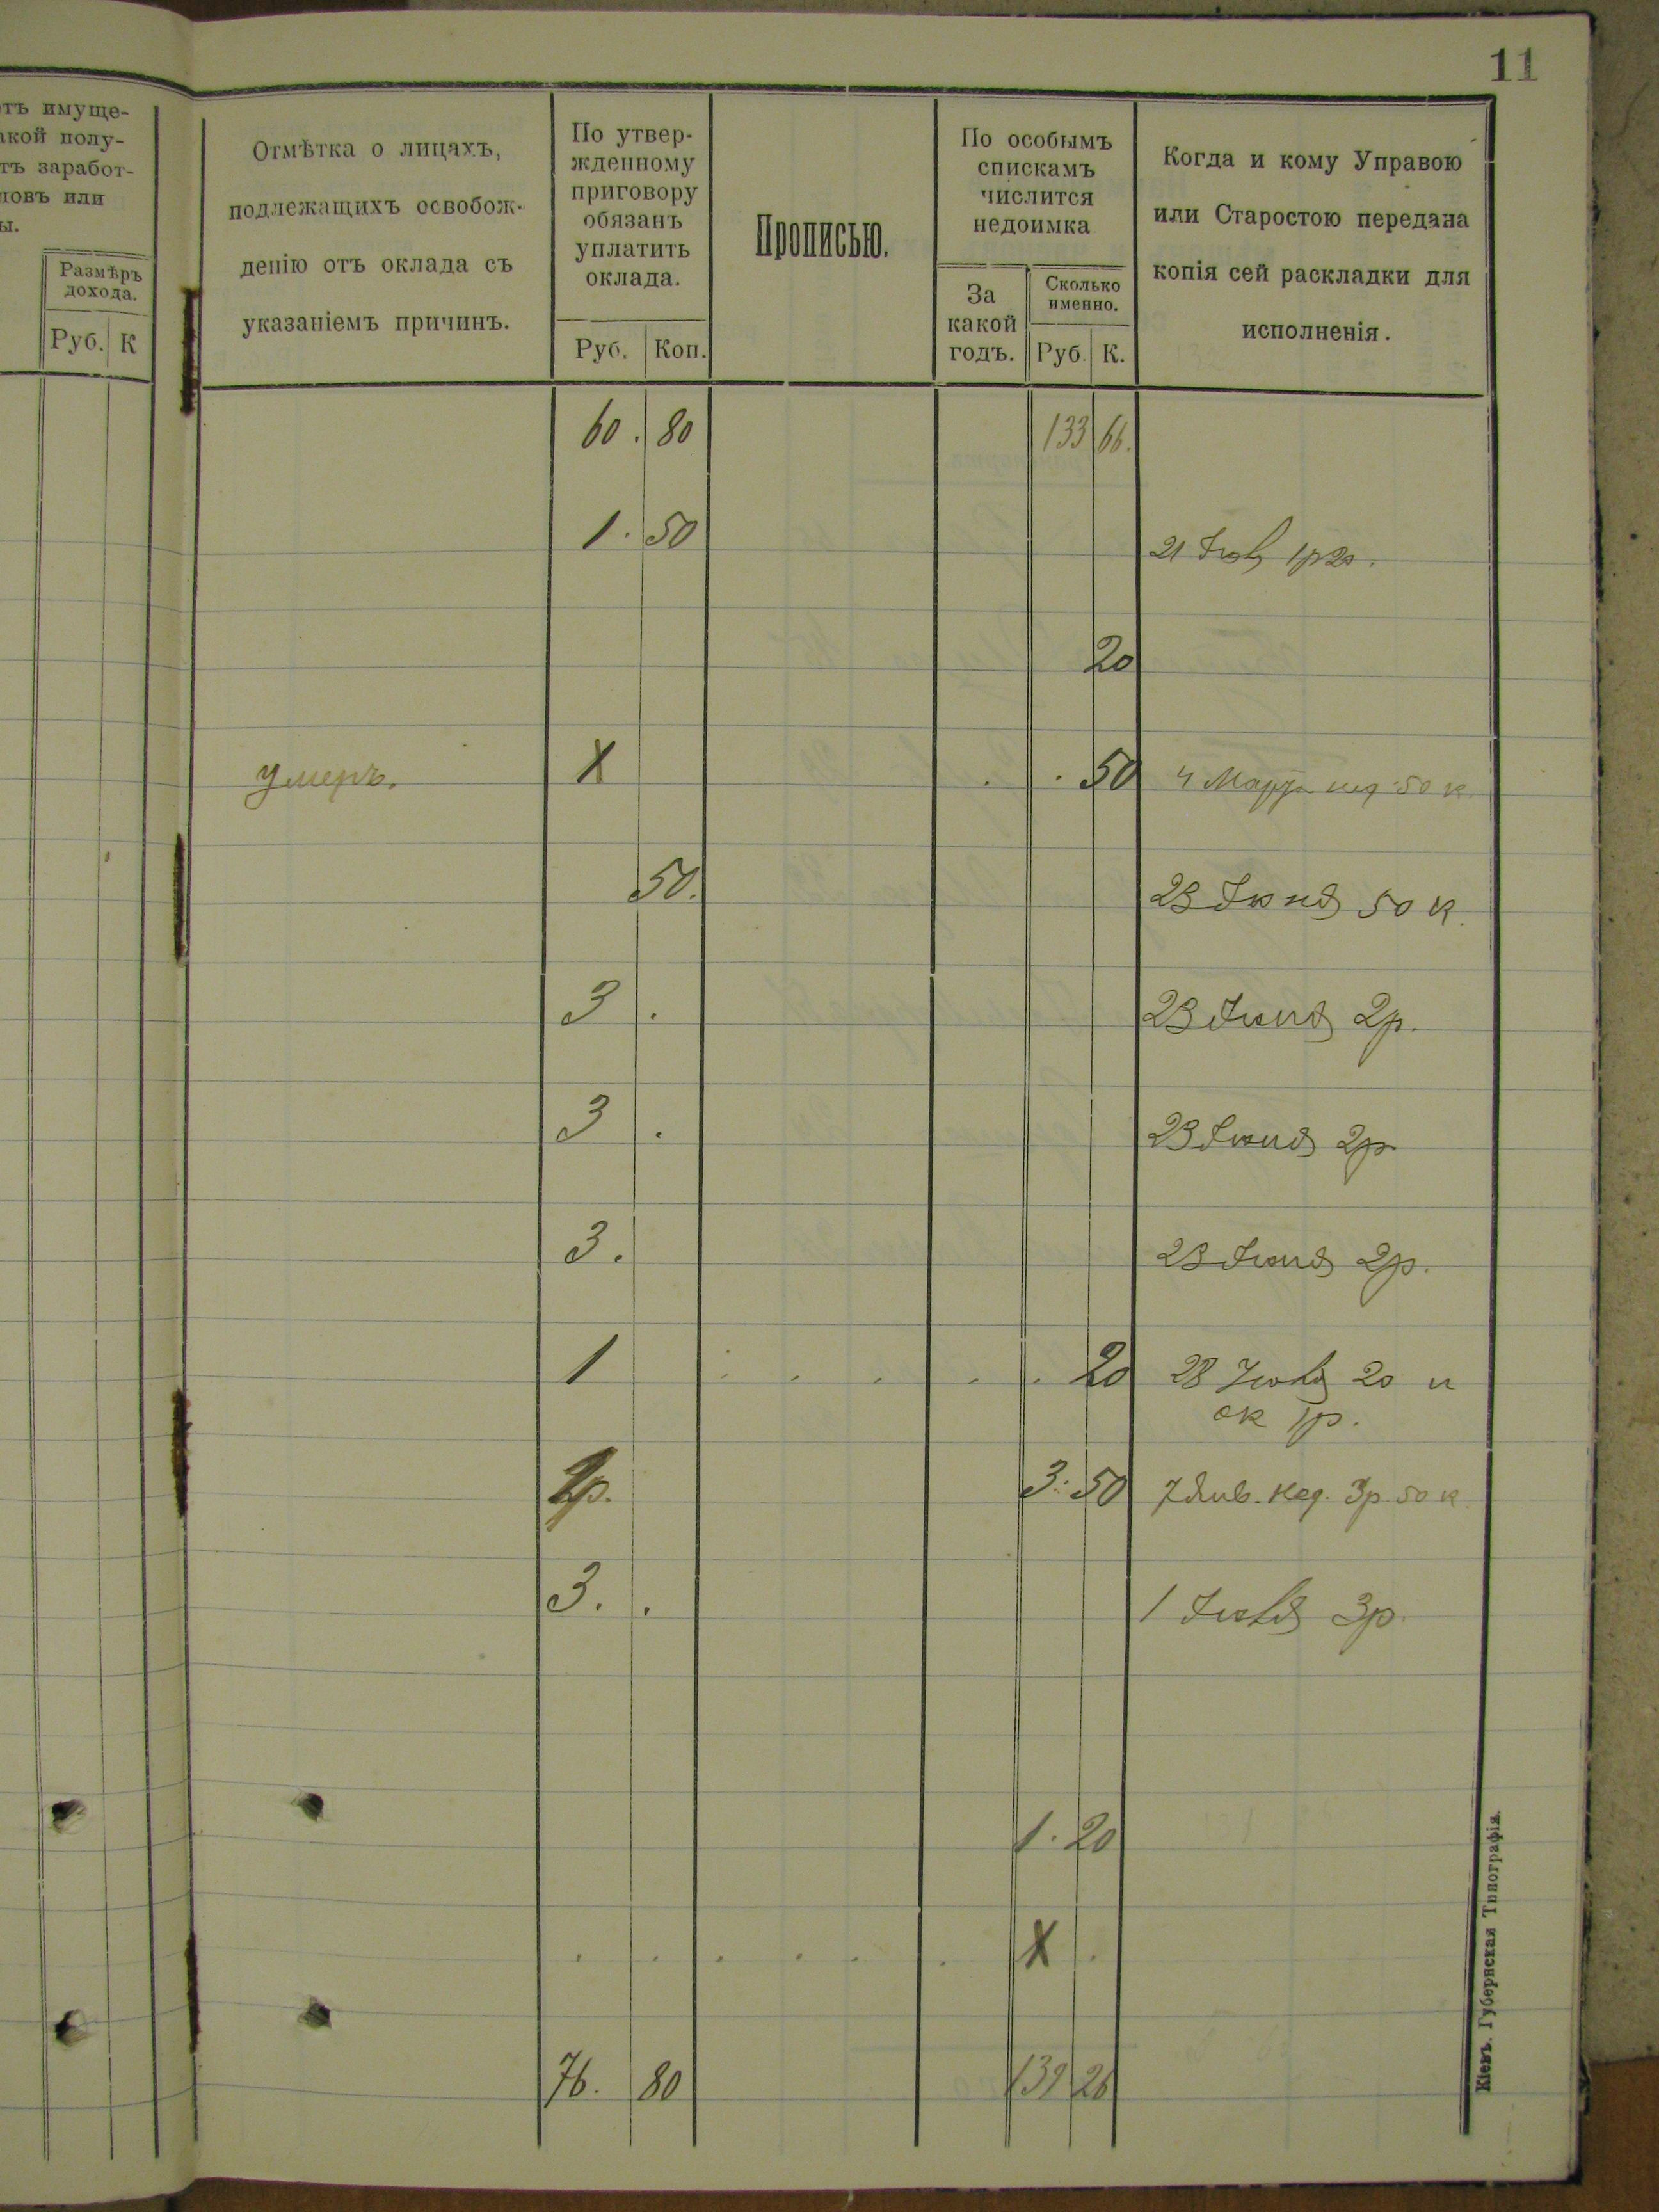 11
отъ имуще-
акой полу-
тъ заработ-
ловъ или
ы.
Размѣръ
дохода.
Руб. К
Отмѣтка о лицахъ,
подлежащихъ освобож-
денію отъ оклада съ
указаніемъ причинъ.
По утвер-
жденному
приговору
обязанъ
уплатить
оклада.
Руб. Коп.
Прописью.
По особымъ
спискамъ
числится
недоимка
За
какой
годъ.
Сколько
именно.
Руб. К.
Когда и кому Управою
или Старостою передана
копія сей раскладки для
исполненія.
60. 80 133 66.
1. 50 21 Іюля 1р 20.
20
умеръ. X 50 4 Марта нед 50 к.
50. 23 Іюня 50 к.
3 . 23 Іюня 2р.
3 . 23 Іюня 2р.
3. 23 Іюня 2р.
1 . . . . . 20 28 Іюля 20 и
ок 1р.
р. 3. 50 7 Янв. нед. 3р 50 к
3. . 1 Іюля 3р.
1. 20
. . . . . . X .
76. 80 139 26
Кіевъ. Губернская Типографія.